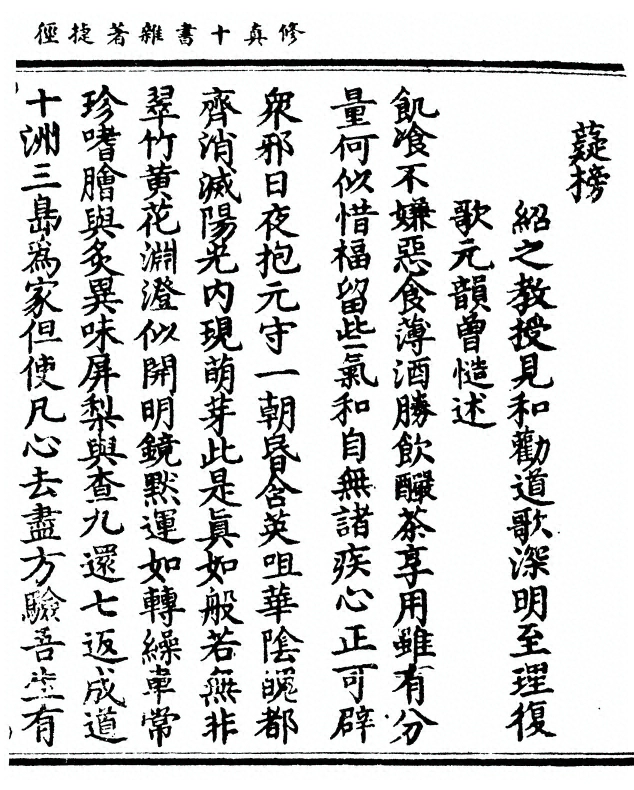 修真十書雜著捷徑
薿榜
紹之教授見和勸道歌深明至理復
歌元韻曾慥述
飢飡不嫌惡食薄酒勝飲釅茶享用雖有分
量何似惜福留些氣和自無諸疾心正可辟
衆邪日夜抱元守一朝昏含英咀華陰魄都
齊消滅陽光內現萌芽此是眞如般若無非
翠竹黄花淵澄似開明鏡默運如轉繰車常
珍嗜膾與炙異味屏梨與查九還七返成道
十洲三島為家但使凡心去盡方驗吾生有